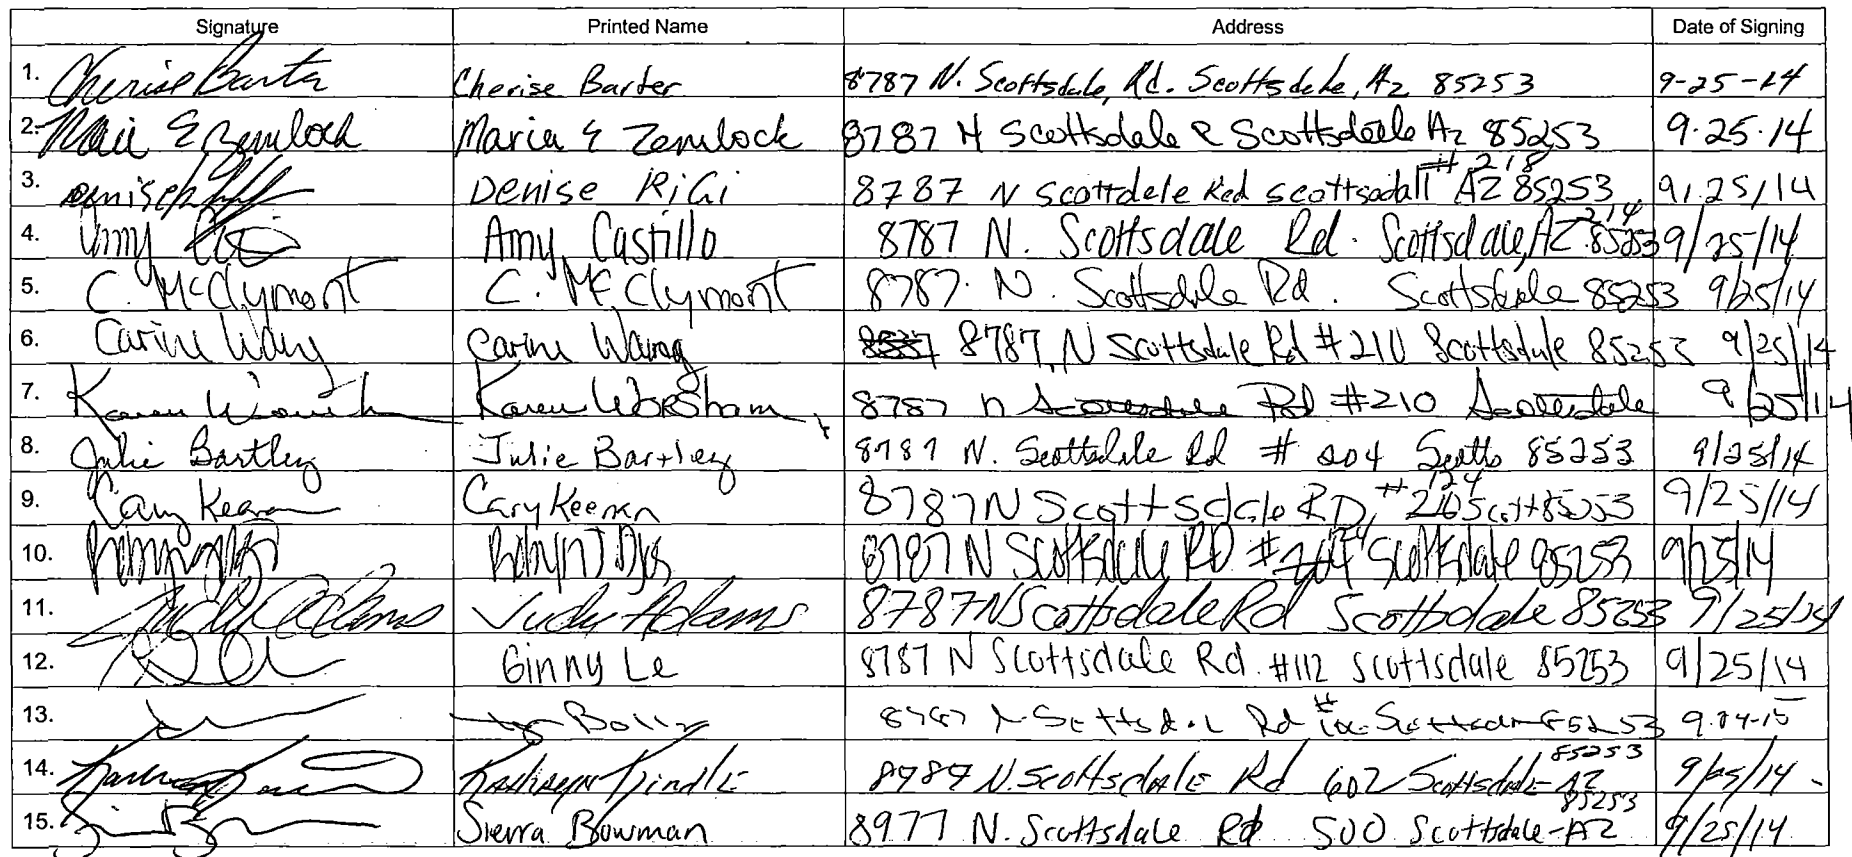 Signature Printed Name Address Date of Signing
1. Cherise Barter Cherise Barter 8787 N. Scottsdale, Rd. Scottsdale, Az 85253 9-25-14
2. Maria E Zemlock Maria E Zemlock 8787 N Scottsdale R Scottsdale Az 85253 9.25.14
3. Denise Denise RiGi 8787 N Scottdele Red scottsodall #218 AZ 85253 9/25/14
4. Amy Amy Castillo 8787 N. Scottsdale Rd. Scottsdale, AZ 214 85253 9/25/14
5. C. McClymont C. McClymont 8787 N. Scottsdale Rd. Scottsdale 85253 9/25/14
6. Carine Wang Carine Wang 8787 N Scottsdale Rd #210 Scottsdale 85253 9/25/14
7. Karen Karen Worsham 8787 n Scottsdale Rd #210 Scottsdale 9/25/14
8. Julie Bartley Julie Bartley 8787 N. Scottsdale Rd # 204 Scotts 85253 9/25/14
9. Cary Keenan Cary Keenan 8787 N Scottsdale RD, #124 Scott 85253 9/25/14
10. 8787 N Scottsdale RD # Scottsdale 85253 9/25/14
11. Judy Adams Judy Adams 8787 N Scottsdale Rd Scottsdale 85253 9/25/14
12. Ginny Le 8787 N Scottsdale Rd. #112 Scottsdale 85253 9/25/14
13. 8787 N Scottsdale Rd # 85253
14. Kathryn Kindle 8787 N. Scottsdale Rd 602 Scottsdale AZ 85253 9/25/14
15. Sierra Bowman 8977 N. Scottsdale Rd 500 Scottsdale-AZ 85253 9/25/14